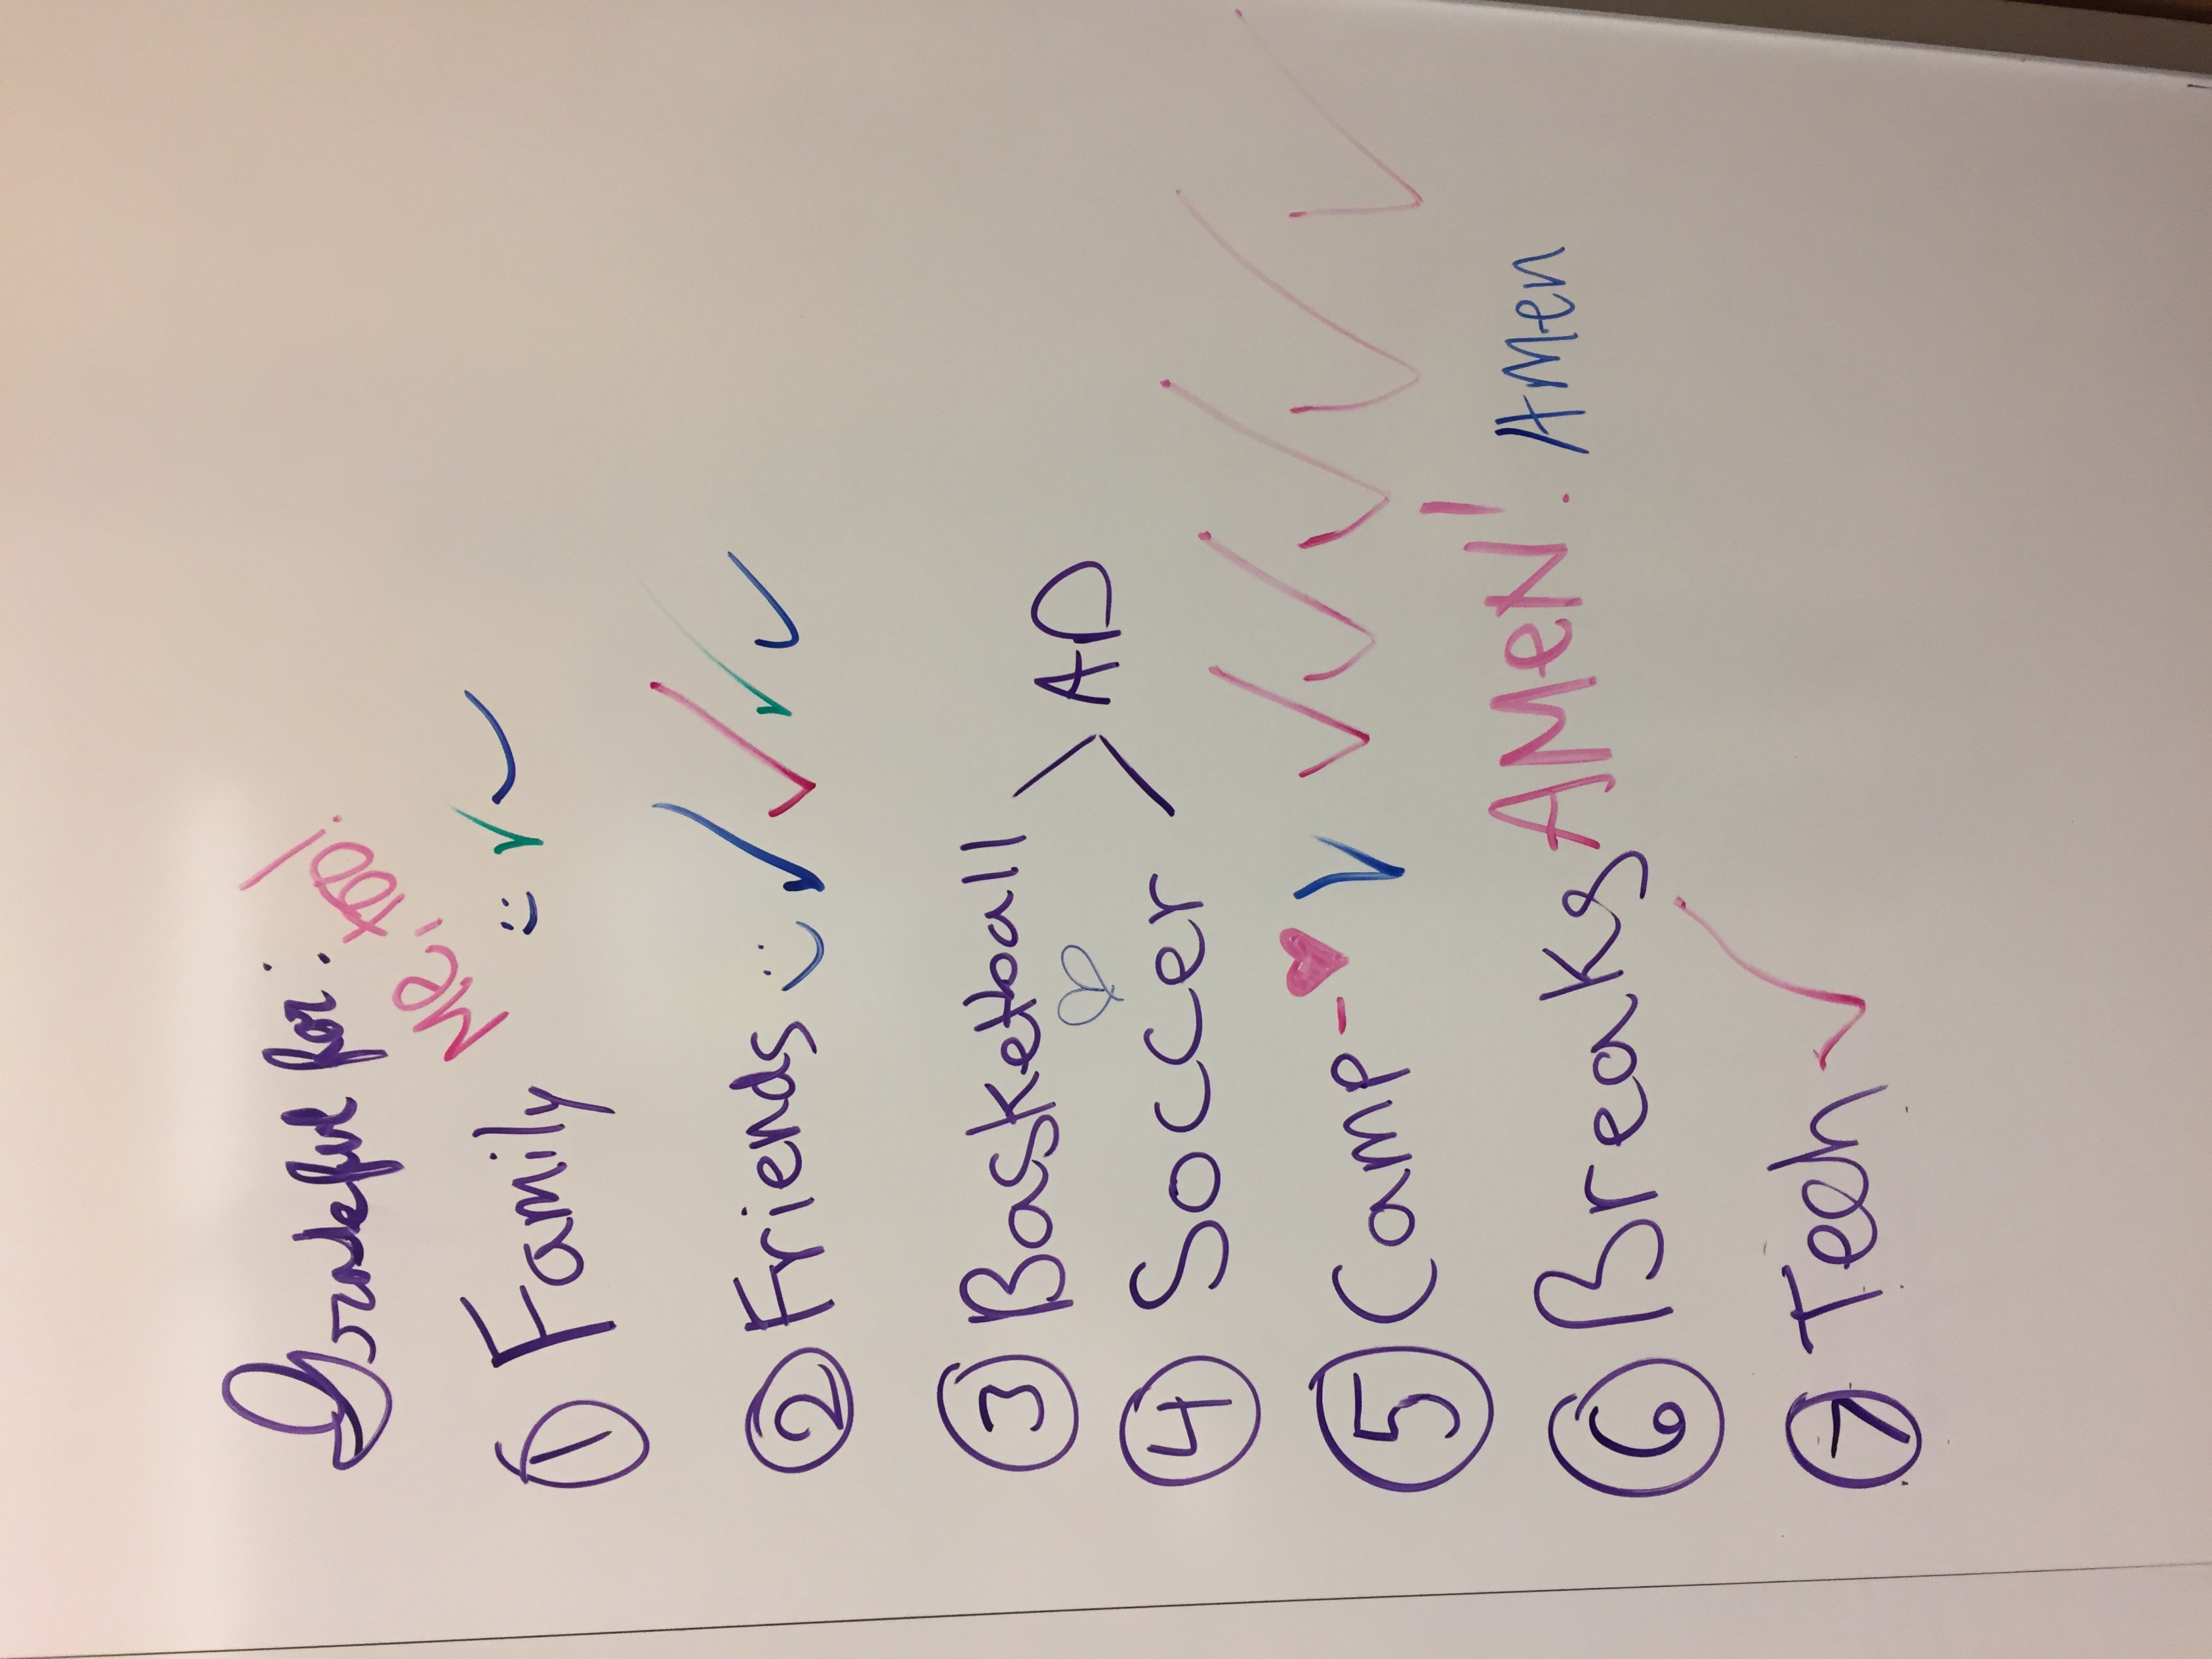 Grateful for:
Me, too!
① Family :) ✓ ✓
② Friends :) ✓ ✓ ✓ ✓
③ Basketball > AD
④ Soccer
⑤ Camp - ♥ ✓ ✓ ✓ ✓ ✓ ✓
⑥ Breaks AMeN! Amen
⑦ Tech ✓